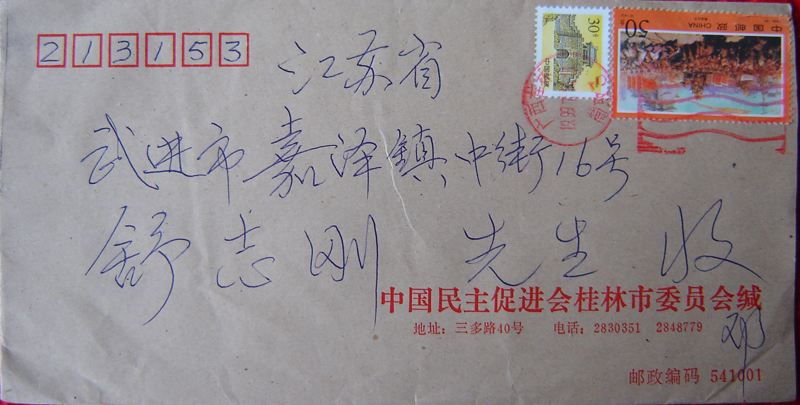 213153
江苏省
武进市嘉泽镇中街16号
舒志刚 先生 收
中国民主促进会桂林市委员会缄
地址：三多路40号 电话：2830351 2848779
邓
邮政编码 541001
30分
中国邮政
50分
中国邮政 CHINA